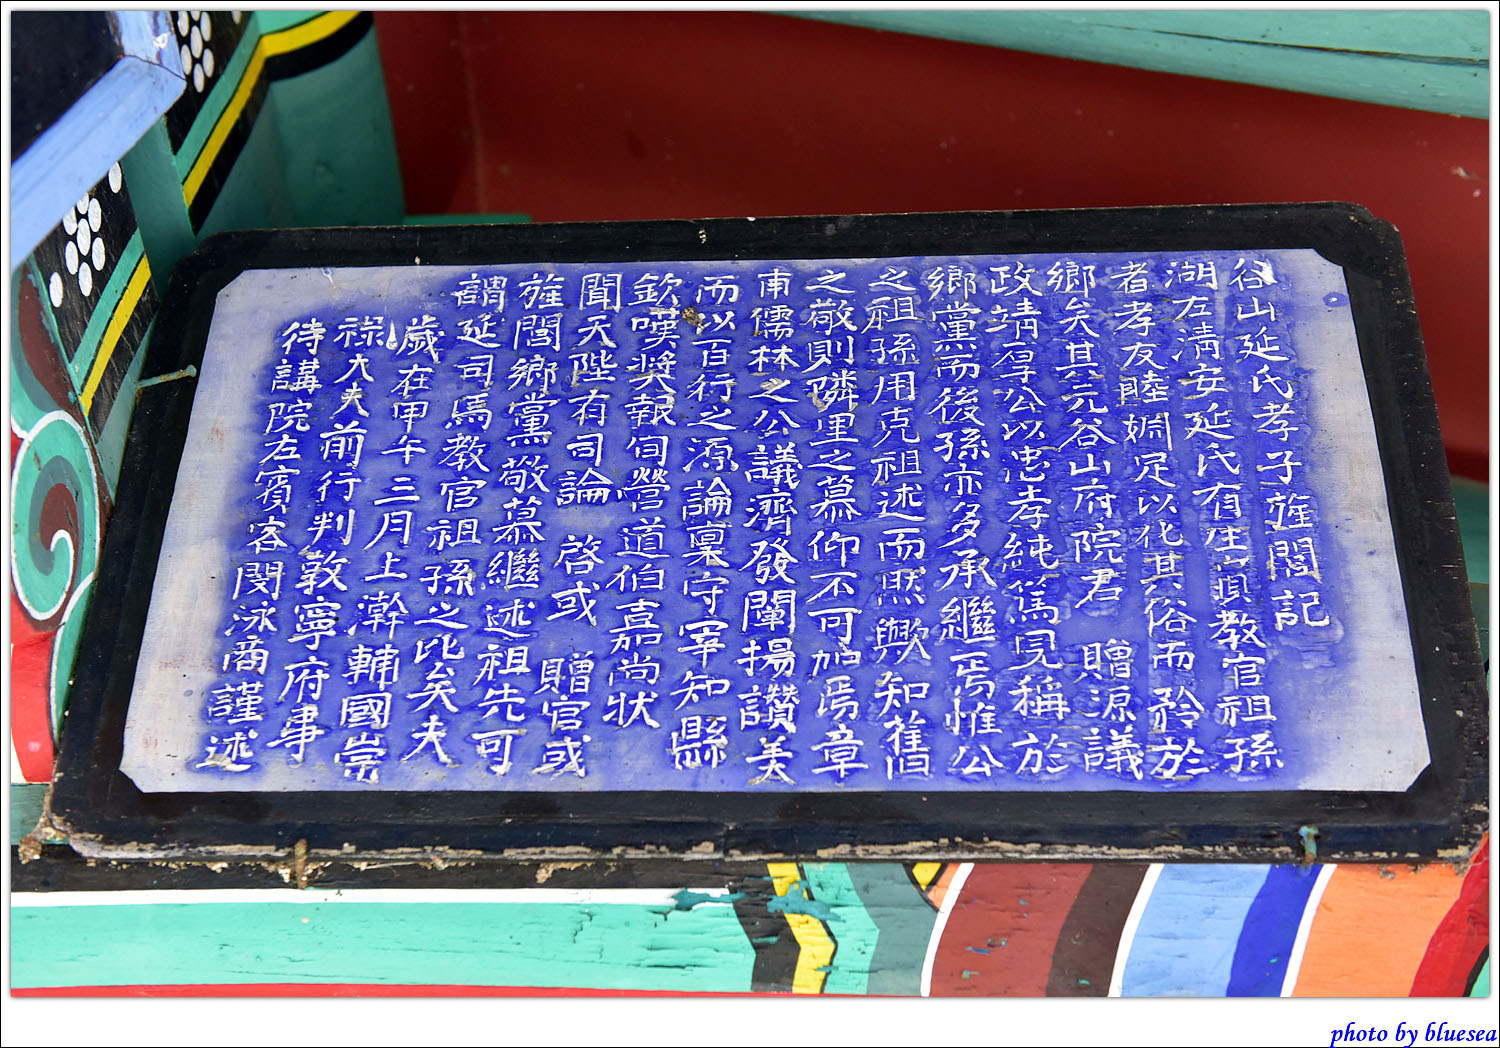 谷山延氏孝子旌閭記
湖左淸安延氏有生員教官祖孫
者孝友睦婣足以化其俗而矜於
鄉矣其元谷山府院君 贈源議
政靖厚公以忠孝純篤見稱於
鄉黨而後孫亦多承繼焉惟公
之祖孫用克祖述而然歟知舊
之敬則隣里之慕仰不可加焉章
甫儒林之公議濟發闡揚讚美
而以百行之源論稟守宰知縣
欽嘆奬報旬營道伯嘉尚狀
聞天陛有司論 啓或 贈官或
旌閭鄉黨敬慕繼述祖先可
謂延司馬教官祖孫之比矣夫
歲在甲午三月上澣輔國崇
祿大夫前行判敦寧府事
侍講院左賓客閔泳商謹述
photo by bluesea